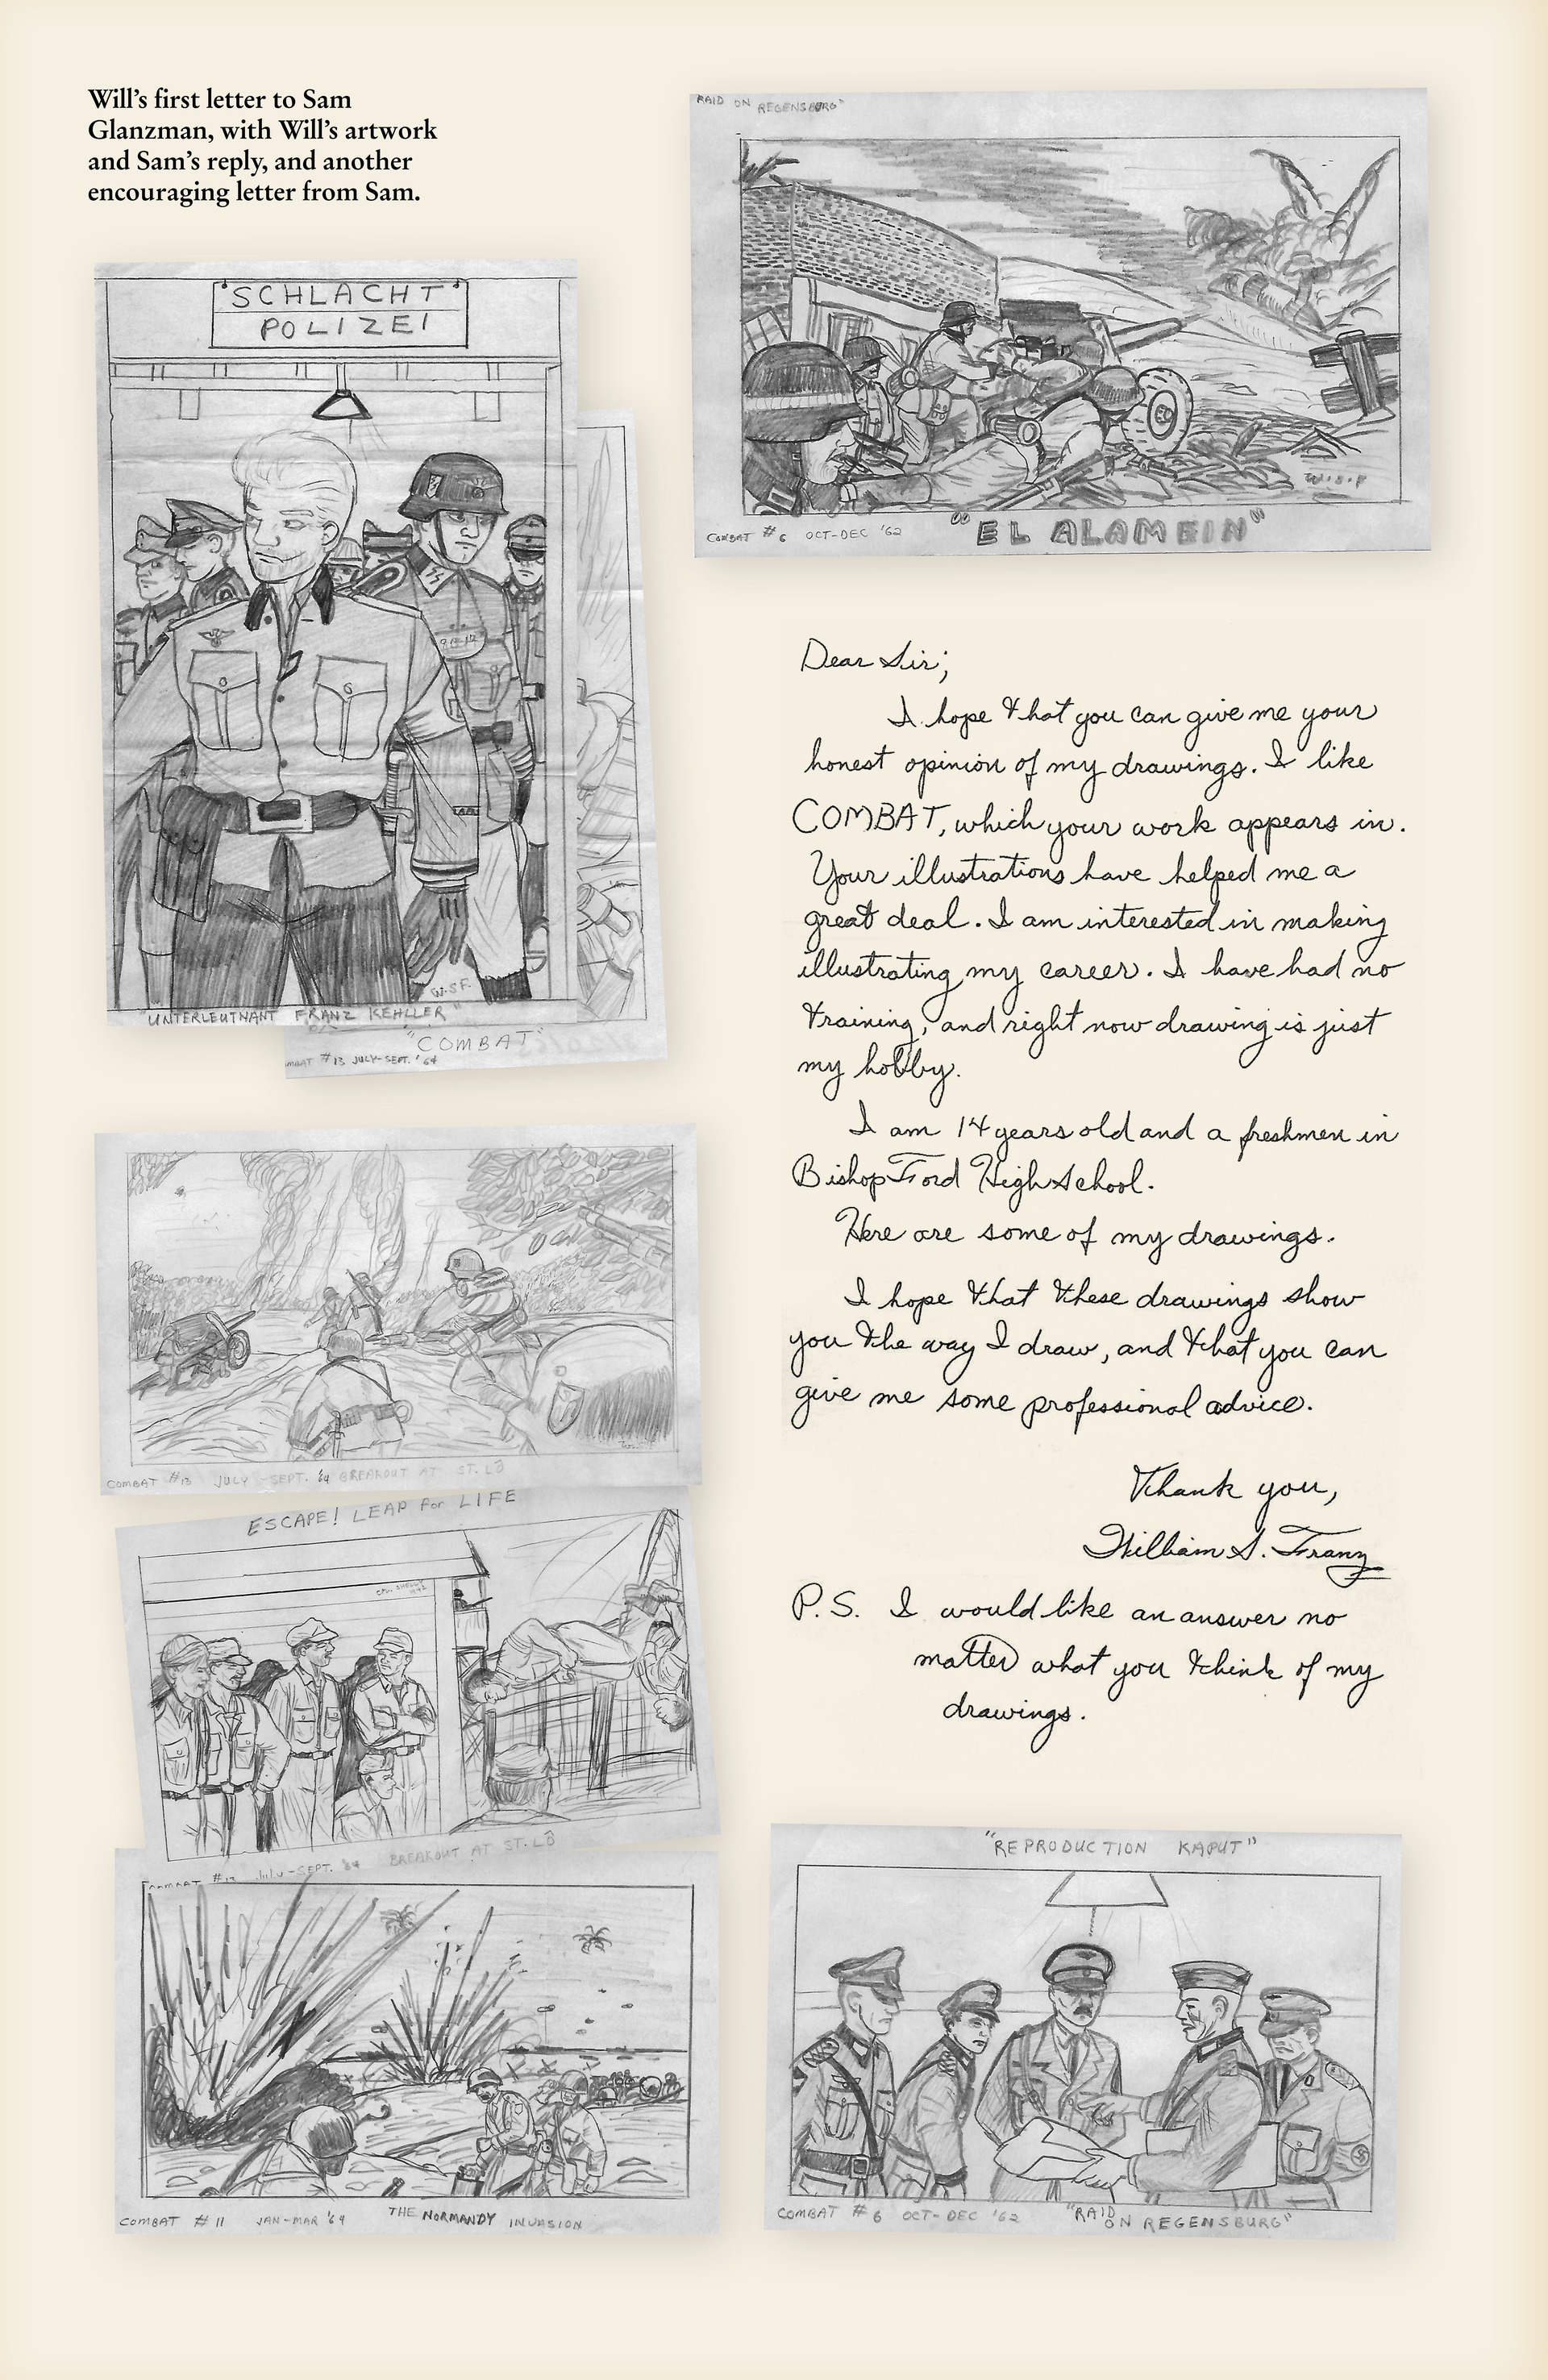 Will's first letter to Sam
Glanzman, with Will's artwork
and Sam's reply, and another
encouraging letter from Sam.
"SCHLACHT"
POLIZEI
W.S.F.
"UNTERLEUTNANT FRANZ KEHLLER"
"COMBAT"
#13 JULY-SEPT. '64
COMBAT #13 JULY-SEPT. '64 BREAKOUT AT ST. LÔ
ESCAPE! LEAP for LIFE
COMBAT #13 JULY-SEPT. '64 BREAKOUT AT ST. LÔ
COMBAT #11 JAN-MAR '64 THE NORMANDY INVASION
RAID ON REGENSBURG"
W.S.F
COMBAT #6 OCT-DEC '62 "EL ALAMEIN"
Dear Sir;
I hope that you can give me your
honest opinion of my drawings. I like
COMBAT, which your work appears in.
Your illustrations have helped me a
great deal. I am interested in making
illustrating my career. I have had no
training, and right now drawing is just
my hobby.
I am 14 years old and a freshmen in
Bishop Ford High School.
Here are some of my drawings.
I hope that these drawings show
you the way I draw, and that you can
give me some professional advice.
Thank you,
William S. Franz
P.S. I would like an answer no
matter what you think of my
drawings.
"REPRODUCTION KAPUT"
COMBAT #6 OCT-DEC '62 "RAID
ON REGENSBURG"